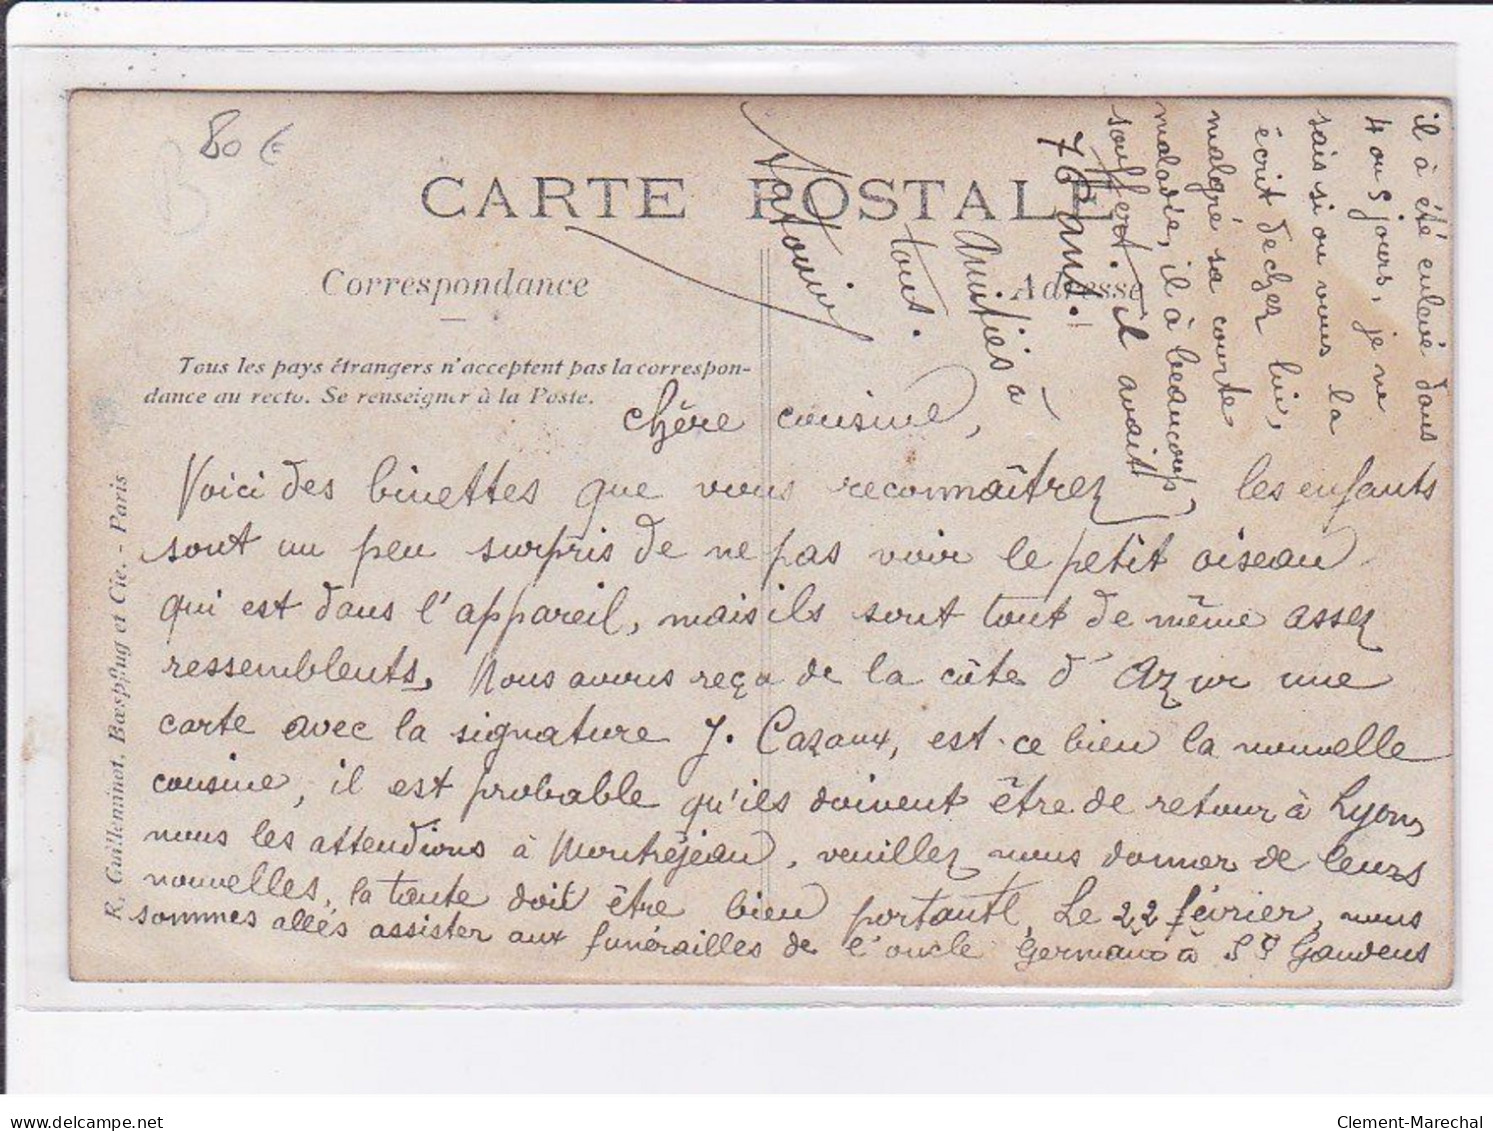 80 €
CARTE POSTALE
Correspondance
Adresse
Tous les pays étrangers n'acceptent pas la correspon-
dance au recto. Se renseigner à la Poste.
R. Guilleminot, Bœspflug et Cie. - Paris
chère cousine,
Voici des binettes que vous reconnaîtrez, les enfants
sont un peu surpris de ne pas voir le petit oiseau
qui est dans l'appareil, mais ils sont tout de même assez
ressemblents, Nous avons reçu de la côte d'Azur une
carte avec la signature J. Cazaux, est-ce bien la nouvelle
cousine, il est probable qu'ils doivent être de retour à Lyon,
nous les attendions à Montréjeau, veuillez nous donner de leurs
nouvelles, la tante doit être bien portante, Le 22 février, nous
sommes allés assister aux funérailles de l'oncle Germain à St Gaudens
il à été enlevé dans
4 ou 5 jours, je ne
sais si on vous la
écrit de chez lui,
malgré sa courte
maladie, il à beaucoup
souffert, il avait
76 ans.
Amitiés à
tous.
delcampe.net
Clement-Marechal